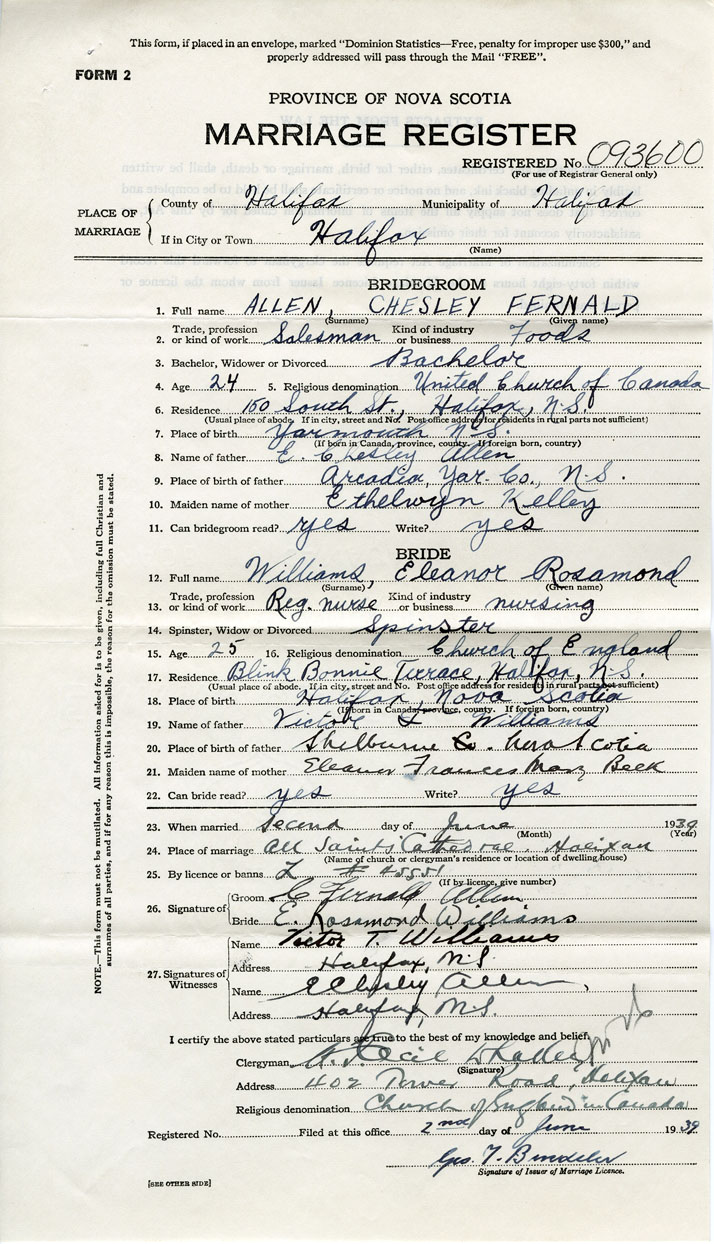 This form, if placed in an envelope, marked "Dominion Statistics—Free, penalty for improper use $300," and
properly addressed will pass through the Mail "FREE".
FORM 2
PROVINCE OF NOVA SCOTIA
MARRIAGE REGISTER
REGISTERED No 093600
(For use of Registrar General only)
PLACE OF MARRIAGE
County of Halifax Municipality of Halifax
If in City or Town Halifax
(Name)
BRIDEGROOM
1. Full name ALLEN, CHESLEY FERNALD
(Surname) (Given name)
2. Trade, profession or kind of work Salesman Kind of industry or business Foods
3. Bachelor, Widower or Divorced Bachelor
4. Age 24 5. Religious denomination United Church of Canada
6. Residence 160 South St., Halifax, N.S.
(Usual place of abode. If in city, street and No. Post office address for residents in rural parts not sufficient)
7. Place of birth Yarmouth N.S.
(If born in Canada, province, county. If foreign born, country)
8. Name of father E. Chesley Allen
9. Place of birth of father Arcadia, Yar. Co., N.S.
10. Maiden name of mother Ethelwyn Kelley
11. Can bridegroom read? yes Write? yes
BRIDE
12. Full name Williams, Eleanor Rosamond
(Surname) (Given name)
13. Trade, profession or kind of work Reg. nurse Kind of industry or business nursing
14. Spinster, Widow or Divorced Spinster
15. Age 25 16. Religious denomination Church of England
17. Residence Blink Bonnie Terrace, Halifax, N.S.
(Usual place of abode. If in city, street and No. Post office address for residents in rural parts not sufficient)
18. Place of birth Halifax, Nova Scotia
(If born in Canada, province, county. If foreign born, country)
19. Name of father Victor Williams
20. Place of birth of father Shelburne Co. Nova Scotia
21. Maiden name of mother Eleanor Frances Mary Beek
22. Can bride read? yes Write? yes
23. When married Second day of June 1939
(Month) (Year)
24. Place of marriage All Saints Cathedral. Halifax
(Name of church or clergyman's residence or location of dwelling house)
25. By licence or banns L #
(If by licence, give number)
26. Signature of
Groom C Fernald Allen
Bride E. Rosamond Williams
27. Signatures of Witnesses
Name Victor T. Williams
Address Halifax, N.S.
Name E Chesley Allen
Address Halifax, N.S.
I certify the above stated particulars are true to the best of my knowledge and belief.
Clergyman Cecil
(Signature)
Address 402 Tower Road, Halifax
Religious denomination Church of England in Canada
Registered No. Filed at this office 2nd day of June 1939
Geo. T.
Signature of Issuer of Marriage Licence.
[SEE OTHER SIDE]
NOTE.—This form must not be mutilated. All information asked for is to be given, including full Christian and
surnames of all parties, and if for any reason this is impossible, the reason for the omission must be stated.